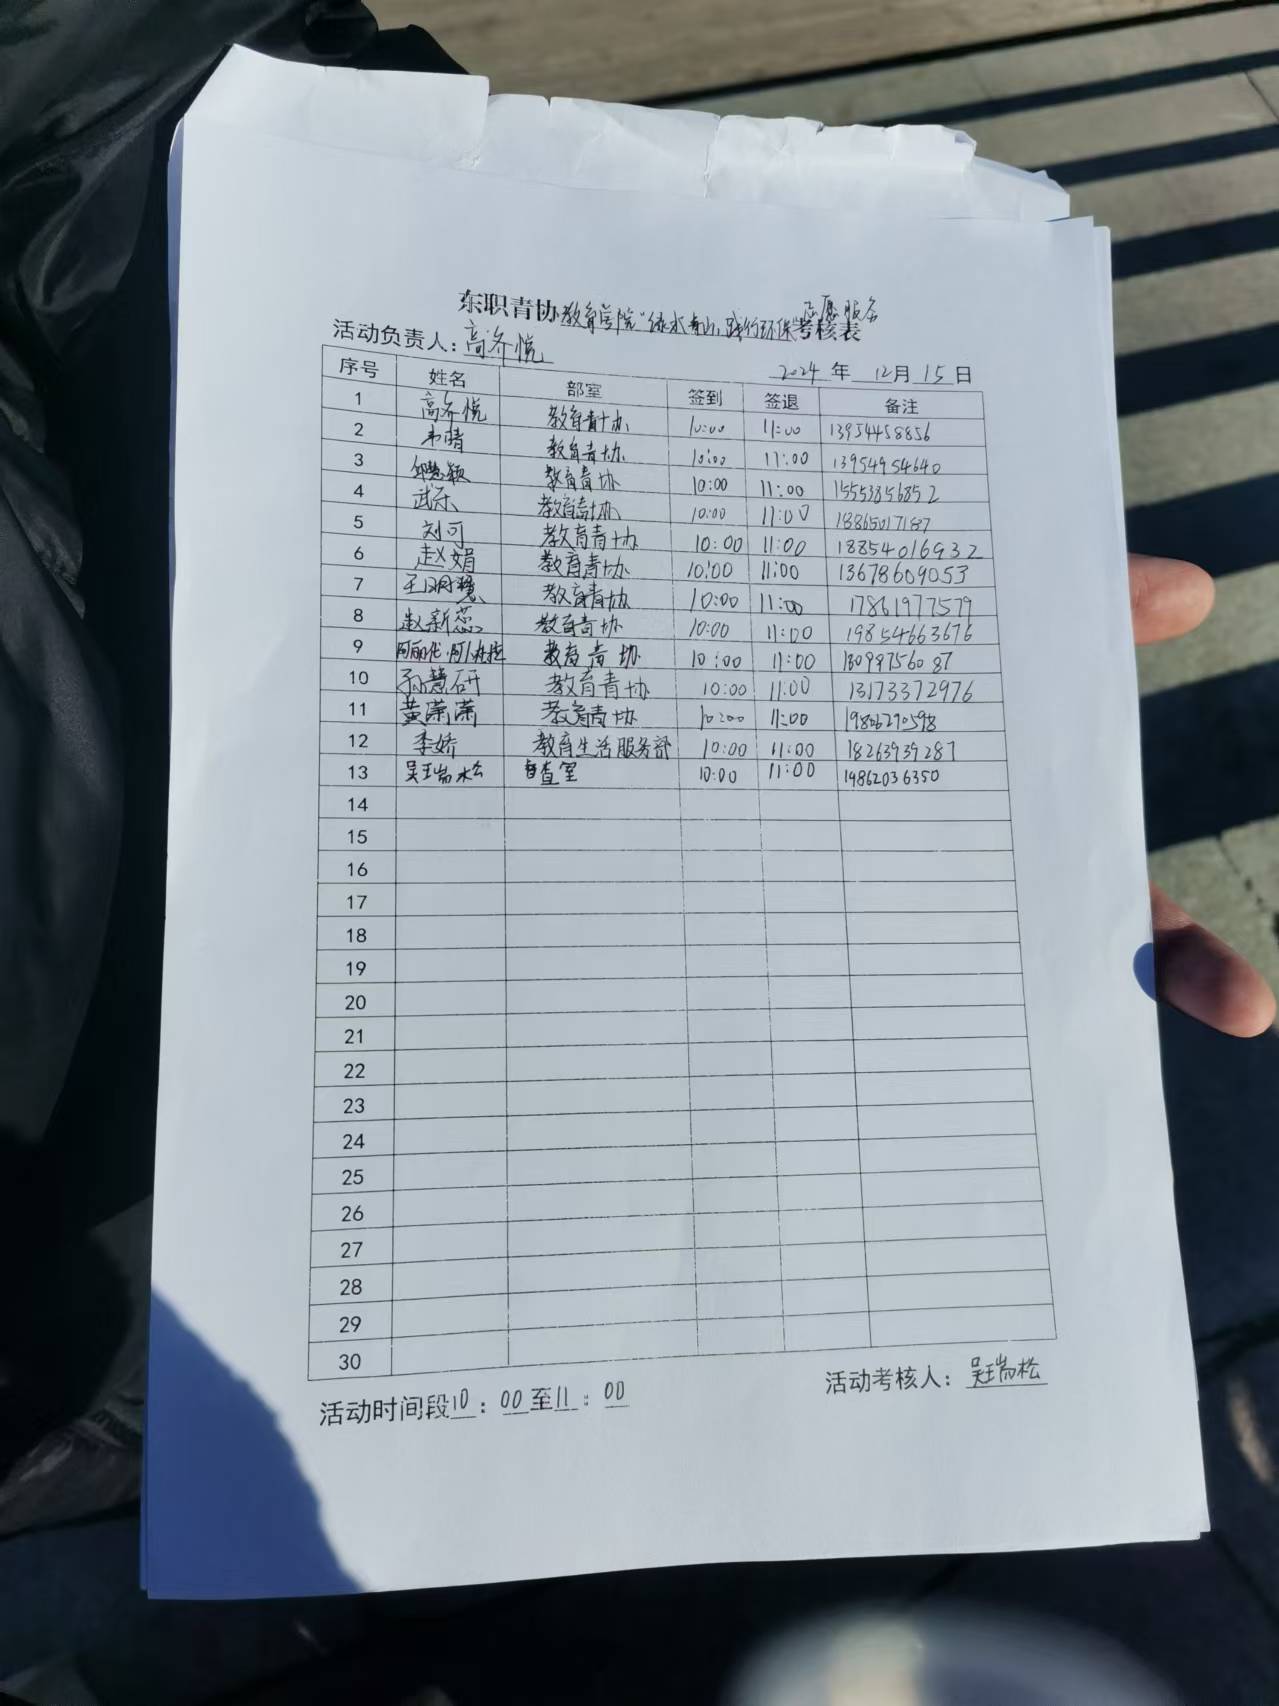 志愿服务
东职青协教育学院“绿水青山,践行环保”考核表
活动负责人:高齐悦
2024年12月15日
序号 姓名 部室 签到 签退 备注
1 高齐悦 教育青协 10:00 11:00 13954458856
2 韦晴 教育青协 10:00 11:00 13954954640
3 邱慧颖 教育青协 10:00 11:00 15553856852
4 武乐 教育青协 10:00 11:00 18865017187
5 刘可 教育青协 10:00 11:00 18854016932
6 赵娟 教育青协 10:00 11:00 13678609053
7 王明慧 教育青协 10:00 11:00 17861977579
8 赵新蕊 教育青协 10:00 11:00 19854663676
9 教育青协 10:00 11:00 18099756087
10 孙慧研 教育青协 10:00 11:00 13173372976
11 黄潇潇 教育青协 10:00 11:00 19806270598
12 李娇 教育生活服务部 10:00 11:00 18263939287
13 吴瑞松 督查室 10:00 11:00 19862036350
14
15
16
17
18
19
20
21
22
23
24
25
26
27
28
29
30
活动时间段10:00至11:00
活动考核人:吴瑞松